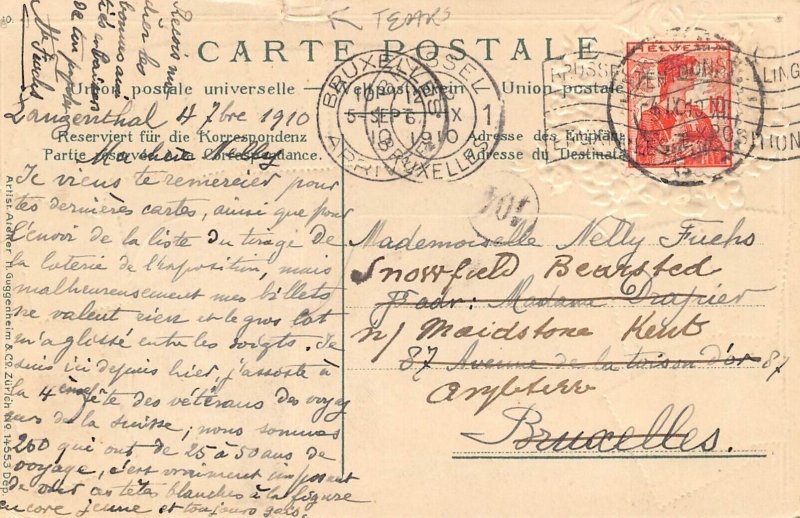 TEARS
CARTE POSTALE
Union postale universelle Weltpostverein Union postale
Reserviert für die Korrespondenz
Partie réservée à la Correspondance.
Adresse des Empfäng
Adresse du Destinata
HELVETIA
BRUXELLES
5 SEPT
1910
1
BRUXELLES
EXPOSITION
Langenthal 4 7bre 1910
Ma chérie Nelly
Je viens te remercier pour
tes dernières cartes, ainsi que pour
l'envoi de la liste du tirage de
la loterie de l'exposition, mais
malheureusement mes billets
ne valent rien et le gros lot
m'a glissé entre les doigts. Je
suis ici depuis hier, j'assiste à
la 4ème fête des vétérans des voya
geurs de la Suisse; nous sommes
260 qui ont de 25 à 50 ans de
voyage, c'est vraiment imposant
de voir as têtes blanches à la figure
encore jeune et toujours gais.
Mademoiselle Nelly Fuchs
Snowfield Bearsted
Fadr: Madame Drapier
n/ Maidstone Kent
87 Avenue de la toison d'or 87
Angleterre
Bruxelles.
Reçois ma
bonnes
de ton
A. Fuchs
Artist. Atelier H. Guggenheim & Co. Zürich No 14553 Dep.